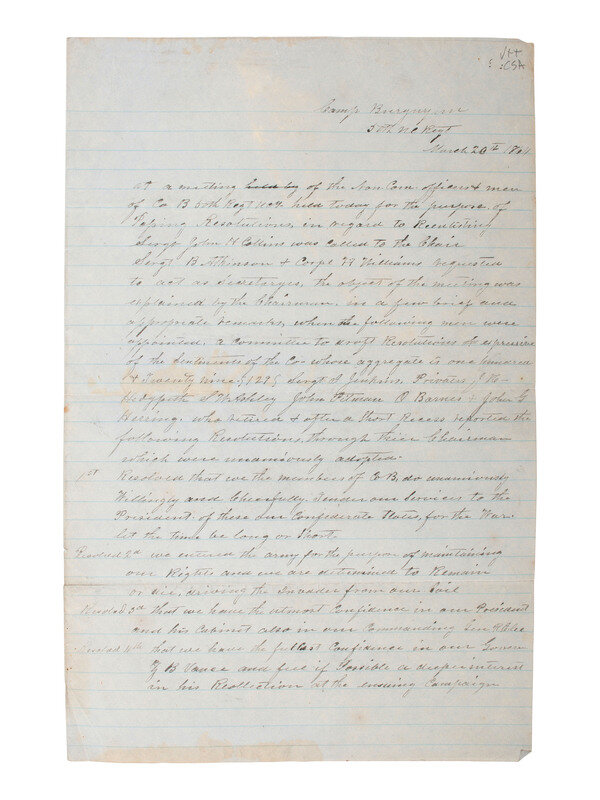 Camp Burgwyn
50th NC Regt
March 20th 1864
at a meeting held by of the Non Com officers & men
of Co B 50th Regt held today for the purpose of
Resolutions, in regard to Reenlisting
Sergt John H Collins was called to the Chair
Sergt B Atkinson & Corpl Williams requested
to act as Secretarys, the object of the meeting was
explained by the Chairman in a few brief and
appropriate remarks, when the following men were
appointed a committee to draft Resolutions expressive
of the Sentiments of the Co- whose aggregate is one hundred
& Twenty nine, (129) Sergt S Jenkins, Privates,
John Pittman Barnes & John G
Herring, who retired & after a Short Recess reported the
following Resolutions, through their Chairman
which were unaniously adopted.
1st Resolved that we the members of Co B, do unaniously
Willingly and Cheerfully Tender our Services to the
President of these our Confederate States, for the War
let the time be long or Short
Resolved 2d we entered the army for the purpose of maintaining
our Rights and we are determined to Remain
or die, driving the Invader from our Soil
Resolved 3d that we have the utmost Confidence in our President
and his Cabinet also in our Commanding Gen R E Lee
Resolved 4th that we have the fullest Confidence in our Govenor
Z B Vance and feel if Possible a deeper interest
in his Reellection at the ensuing Campaign